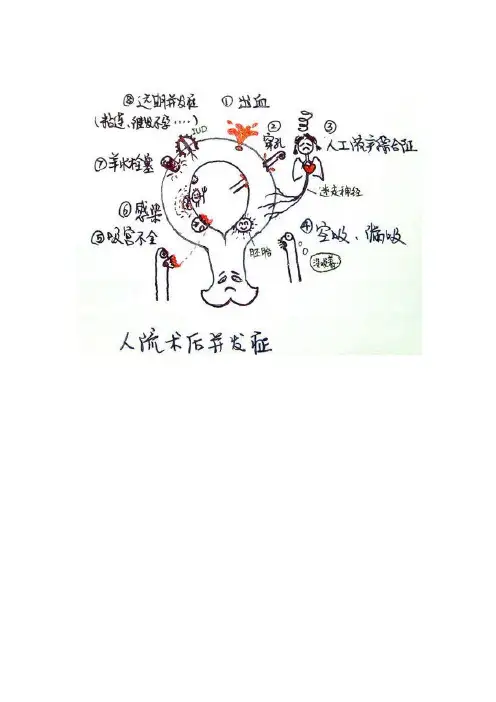 ⑧远期并发症
(粘连、继发不孕……)
IUD
①出血
②
穿孔
③
人工流产综合征
⑦羊水栓塞
迷走神经
⑥感染
⑤吸宫不全
④空吸、漏吸
胚胎
没吸着
人流术后并发症